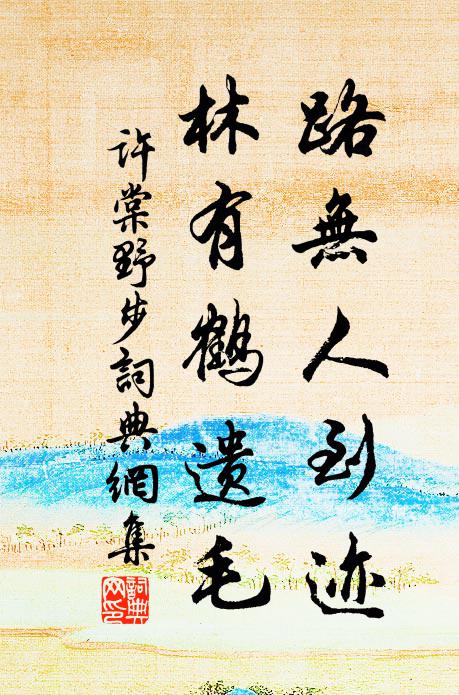 路無人到迹
林有鶴遺毛
許棠野步詞典網集
詞典网印